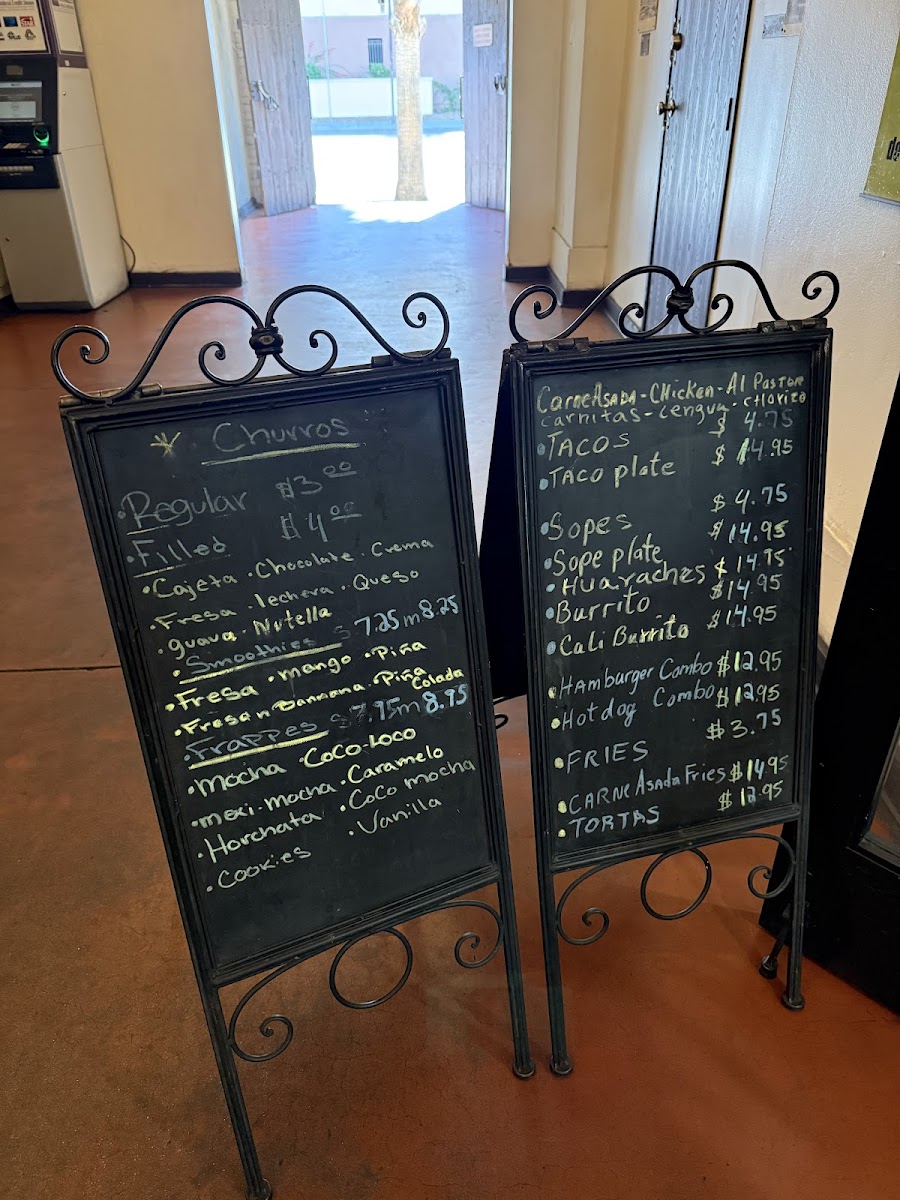 Churros
Regular $3.00
Filled $4.00
Cajeta · Chocolate · Crema
Fresa · lechera · Queso
guava · Nutella
Smoothies $7.25 m 8.25
Fresa · mango · Piña
Fresa n Bannana · Piña Colada
Frappes $7.95 m 8.95
Mocha · Coco-Loco
mexi-mocha · Caramelo
Horchata · CoCo mocha
Cookies · Vanilla
CarneAsada - CHicken - Al PasTor
carnitas - Lengua - CHorizo
TACOS $ 4.75
TACO plate $ 14.95
Sopes $ 4.75
Sope plate $ 14.95
Huaraches $ 14.95
Burrito $ 14.95
Cali Burrito $ 14.95
HAmburger Combo $12.95
Hot dog Combo $12.95
FRIES $ 3.75
CARNe Asada Fries $14.95
TORTAS $ 12.95